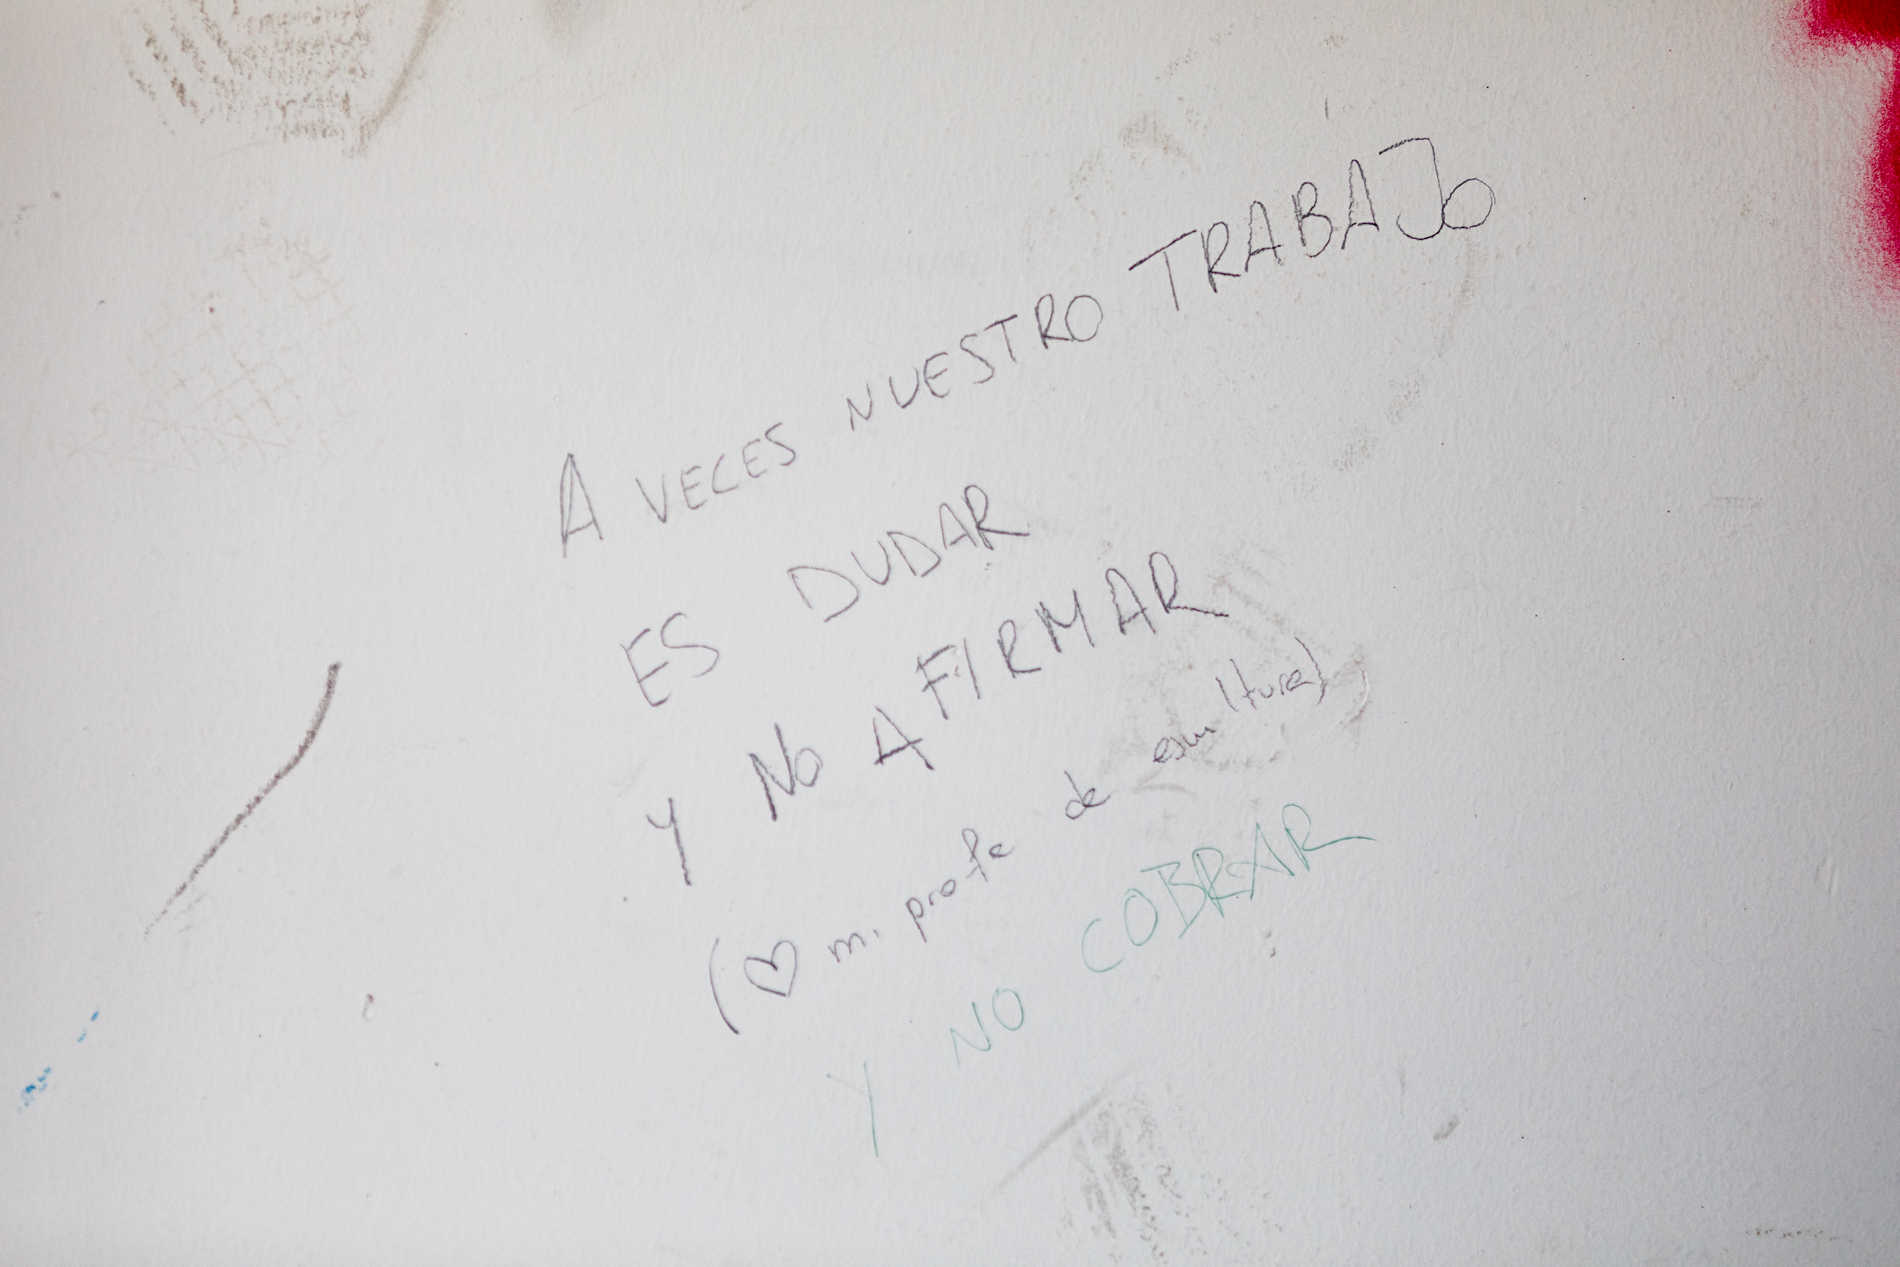 A VECES NUESTRO TRABAJO
ES DUDAR
Y NO AFIRMAR
(♡ mi profe de escultura)
Y NO COBRAR